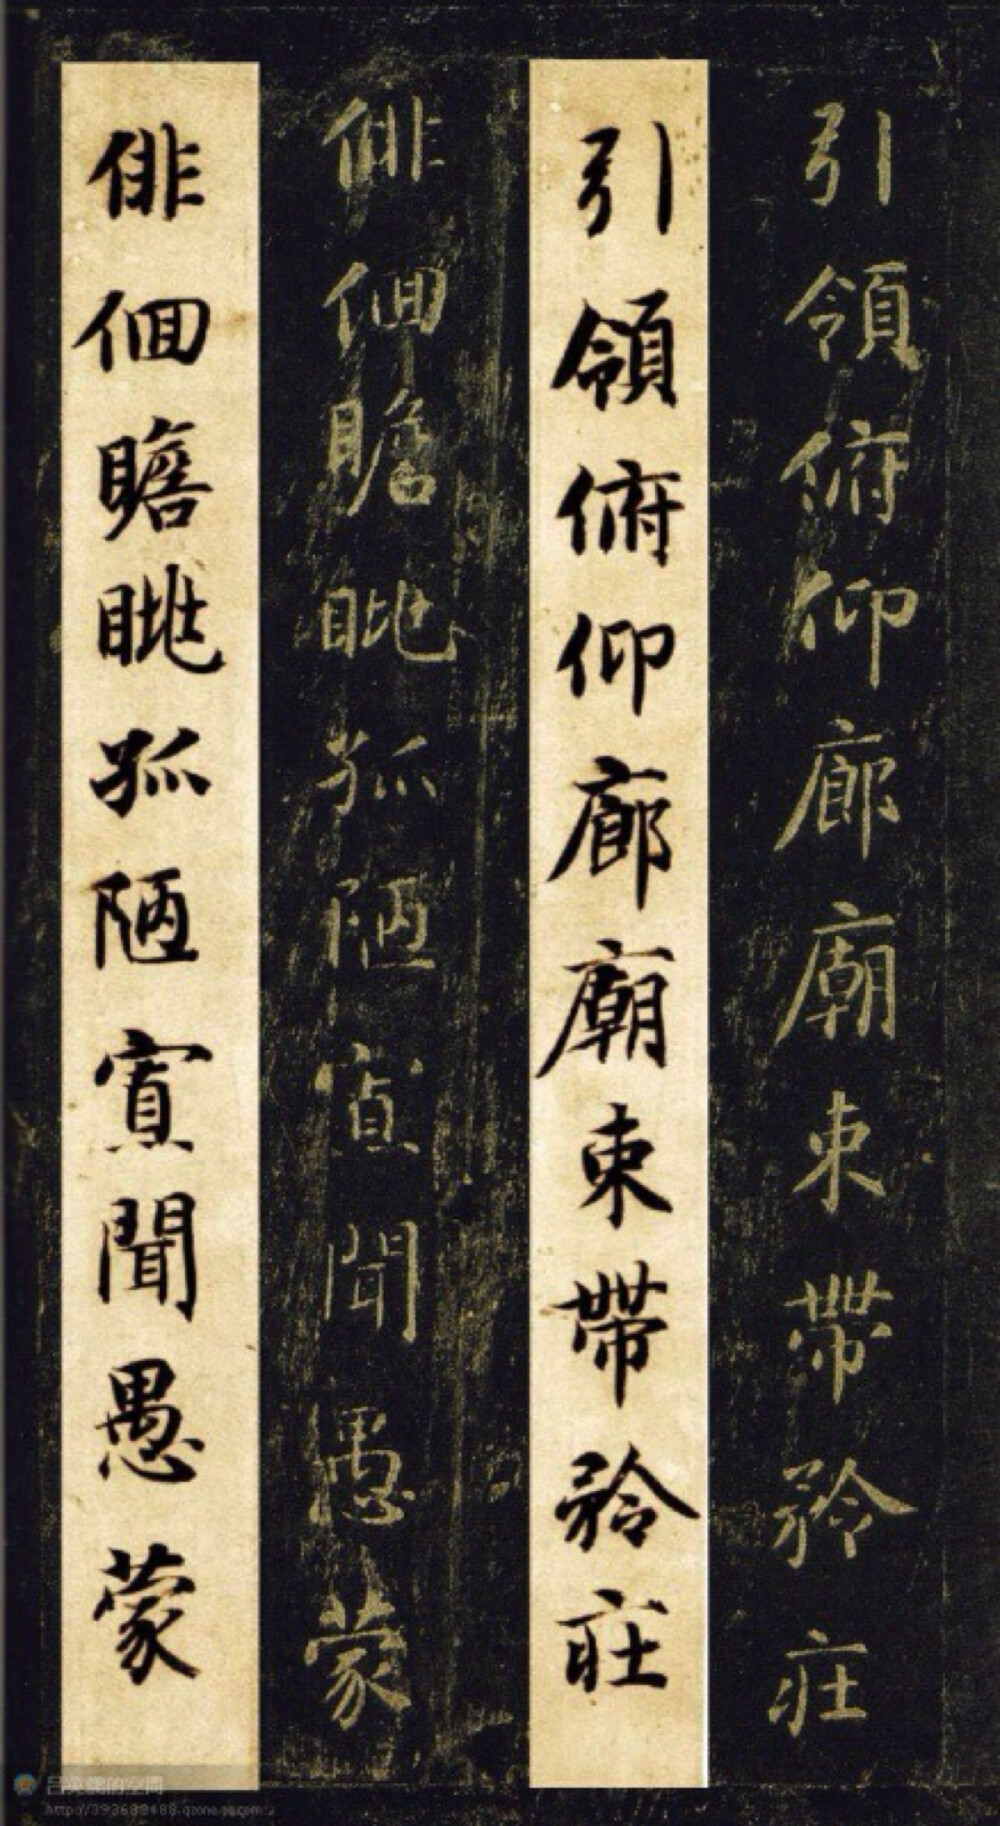 引領俯仰廊廟束帶矜莊
引領俯仰廊廟束帶矜莊
俳佪瞻眺孤陋寡聞愚蒙
俳佪瞻眺孤陋寡聞愚蒙
吕英能的空間
http://393689488.qzone.qq.com